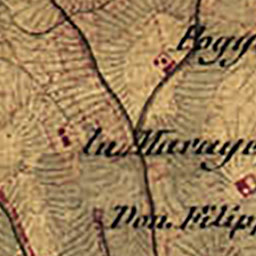 Pogg
la Maraga
Don. Filip